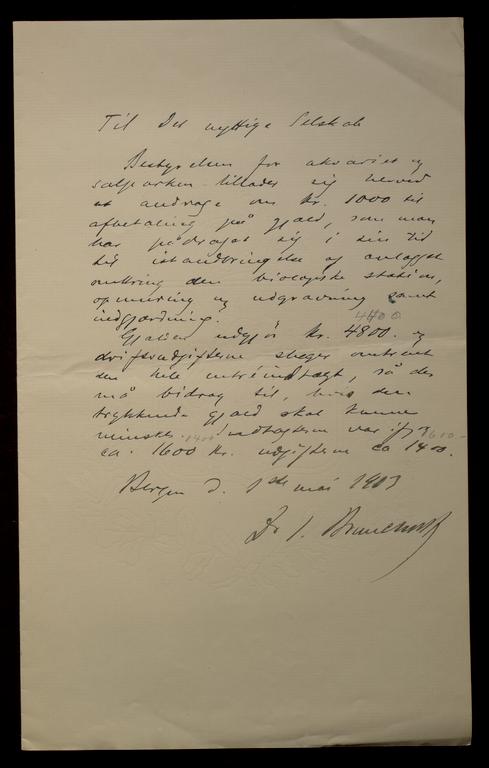 Til Det nyttige Selskab
Bestyrelsen for akvariet og
sælparken tillader sig herved
at andrage om Kr. 1000 til
afbetaling på gjæld, som man
har pådraget sig i sin tid
til istandbringelse af anlægget
omkring den biologiske station,
opmuring og udgravning samt
indgjærdning.
4400
Gjælden udgjør Kr. 4800. og
driftsudgifterne sluger omtrent
den hele entréindtægt, så der
må bidrag til, hvis den
trykkende gjæld skal kunne
minskes. Indtægterne var ifjor
1400 1600-
ca. 1600 Kr. udgifterne ca 1400.
Bergen d. 1ste mai 1903
Dr J. Brunchorst